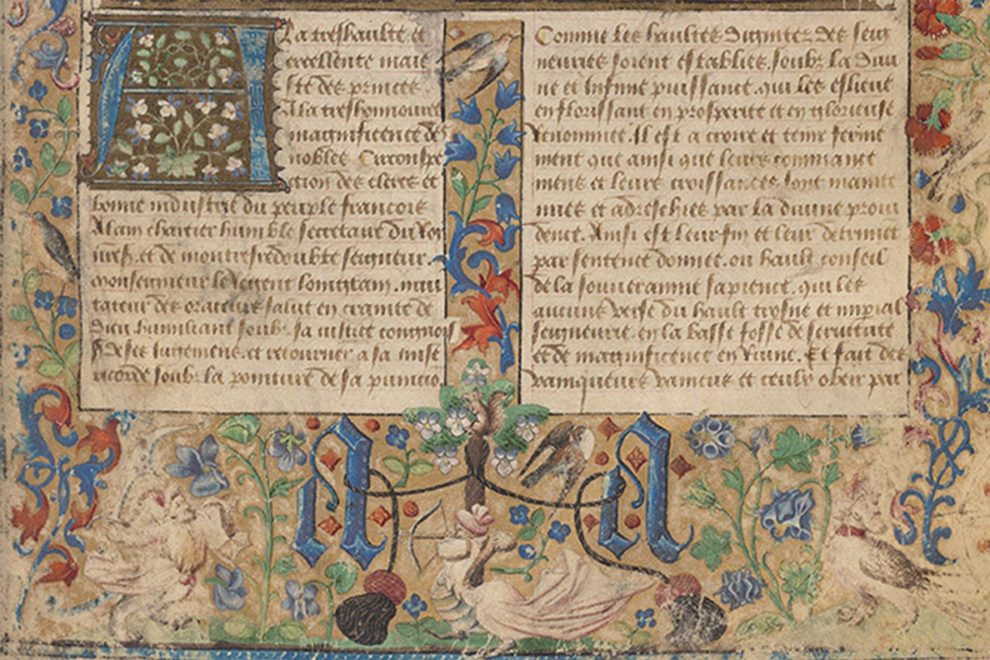 A La treshaulte et
excellente maie
ste des princes
A la treshonnouree
magnificence des
nobles Circonspe
ction des clercs et
bonne industrie du peuple francois
Alain chartier humble secretaire du Roy
et de mon tresredoubte seigneur
monseigneur le Regent loingtain
tateur des orateurs salut en crainte de
dieu humiliant soubz sa iustice congnois
de ses iugemens et retourner a sa mise
ricorde soubz la pointure de sa punicio
Comme les haultes dignitez des seig
neuries soient establies soubz la diui
ne et infinie puissance qui les eslieue
en florissant en prosperite et en glorieuse
Renommee. Il est a croire et tenir ferme
ment que ainsi que leurs commance
mens et leurs croissances sont mainte
nues et adreschies par la diuine proui
dence. Ainsi est leur fin et leur detriment
par sentence donnee ou hault conseil
de la souueraine sapience. qui les
aucuns verse du hault trosne et imperial
seigneurie en la basse fosse de seruitute
et de magnificence en Ruine. Et fait des
vainqueurs vaincus et ceulx obeir par
A A